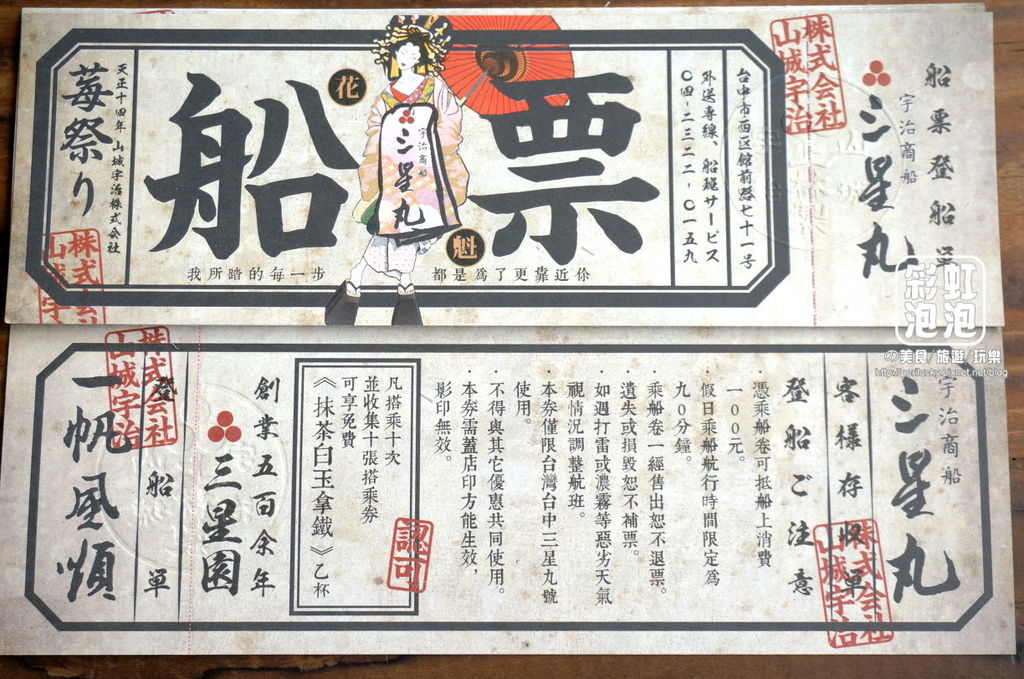 船票登船單
宇治商船
三星丸
株式会社
山城宇治
台中市西区館前路七十一号
外送専線、船班サービス
〇四-二三二二-〇一五九
票
船
花
魁
宇治商船
三星丸
我所踏的每一步
都是為了更靠近你
天正十四年 山城宇治株式会社
莓祭り
株式会社
山城宇
宇治商船
三星丸
客様存収單
株式会社
山城宇治
登船ご注意
・憑乘船卷可抵船上消費
一００元。
・假日乘船航行時間限定為
九０分鐘。
・乘船卷一經售出恕不退票。
遺失或損毀恕不補票。
・如遇打雷或濃霧等惡劣天氣
視情況調整航班。
・本券僅限台灣台中三星丸號
使用。
・不得與其它優惠共同使用。
・本券需蓋店印方能生效，
影印無效。
凡搭乘十次
並收集十張搭乘券
可享免費
《抹茶白玉拿鐵》乙杯
認可
創業五百余年
三星園
登船單
株式会社
山城宇治
一帆風順
彩虹
泡泡
の美食/旅遊/玩樂
http://perilucky.pixnet.net/blog